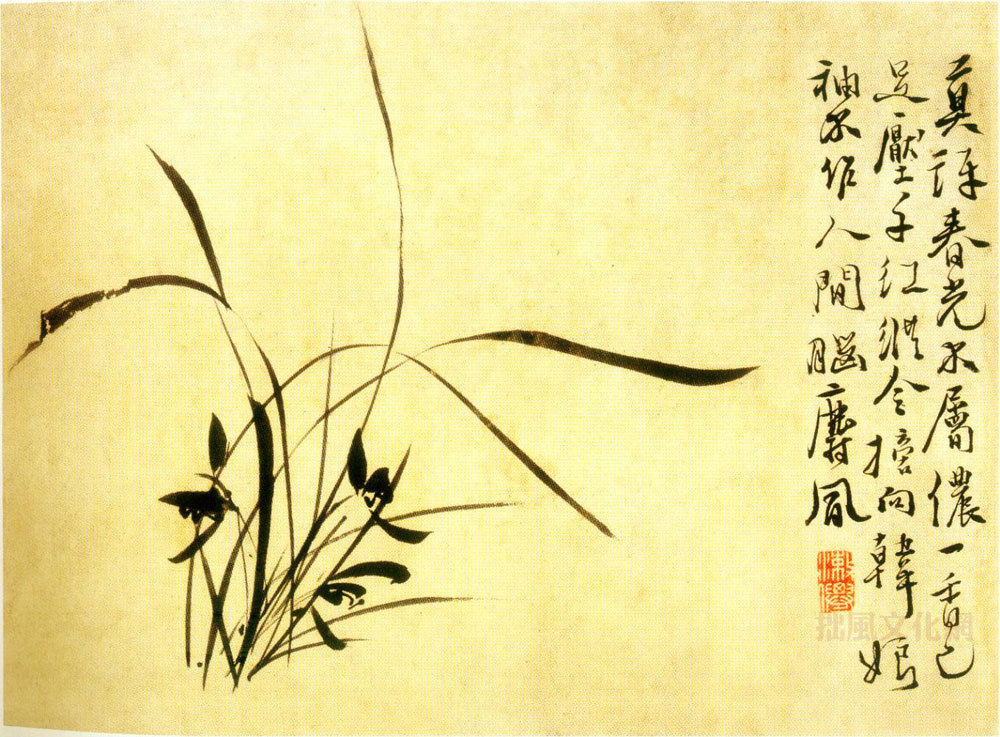 莫訝春光不屬儂一香已
足壓千紅縱令摘向韓娘
袖不作人間腦麝風
拙風文化網